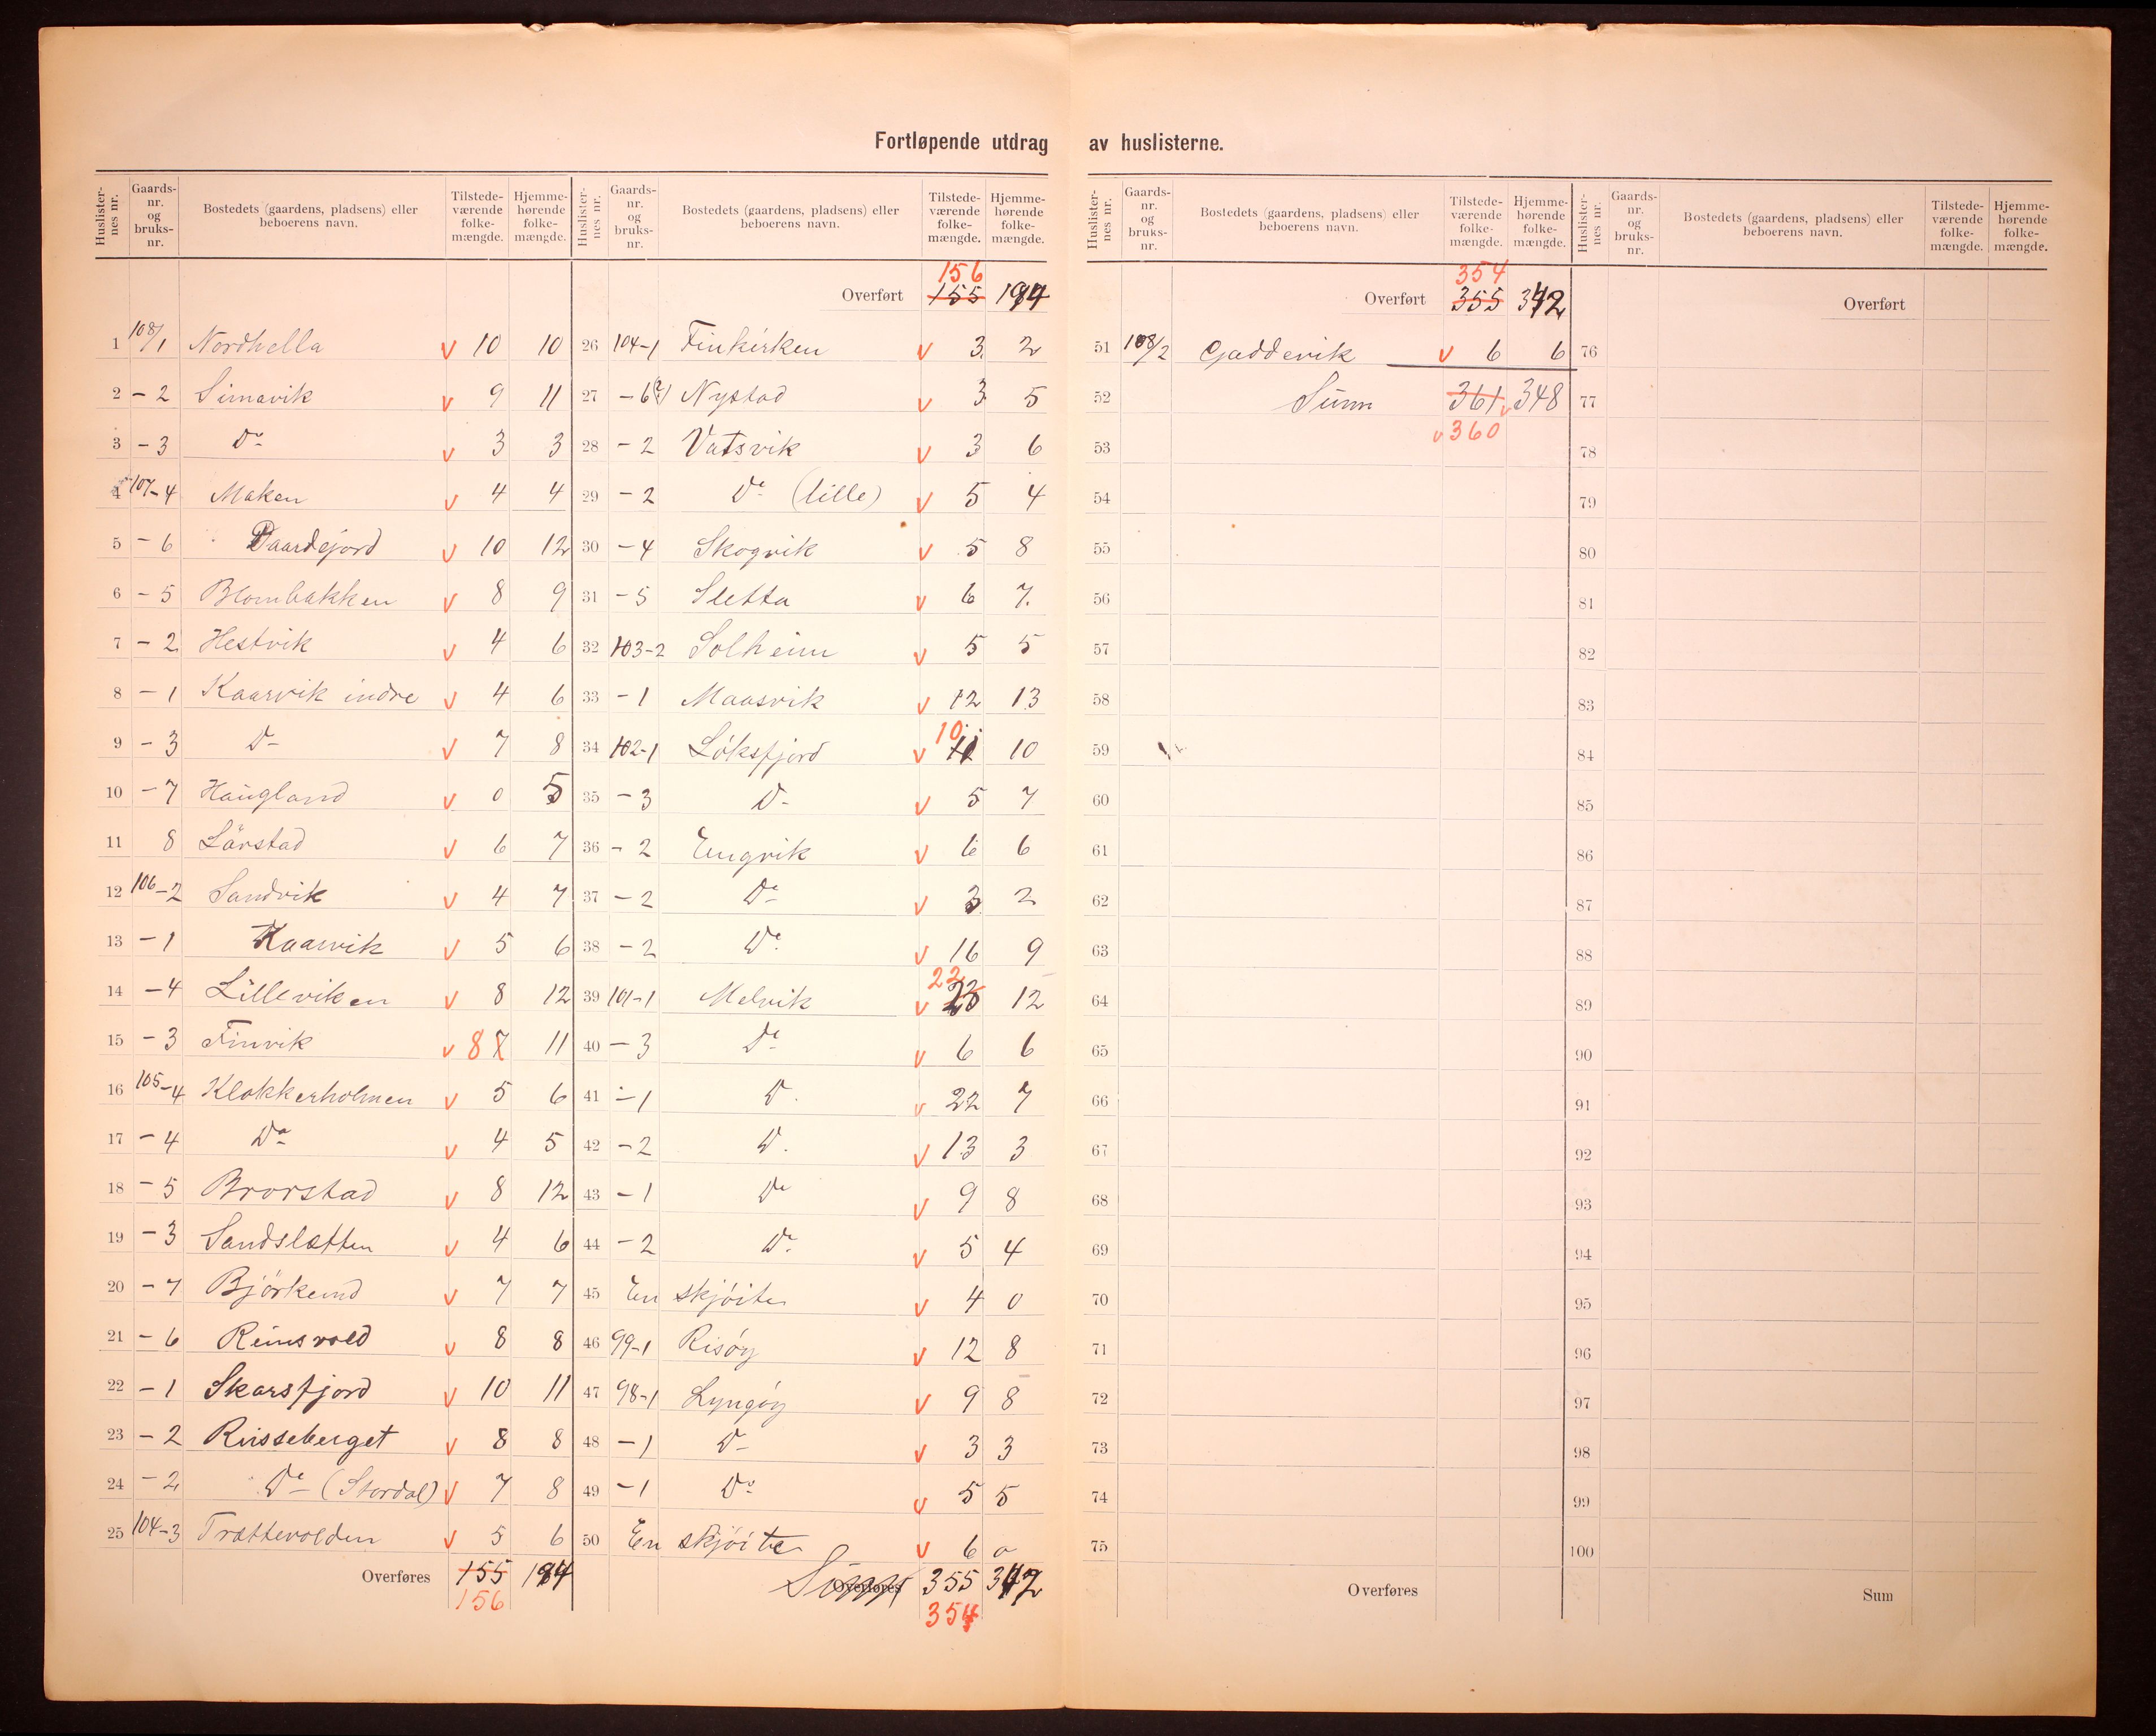 Fortløpende utdrag av huslisterne.
Huslister-nes nr. Gaards-nr. og bruks-nr. Bostedets (gaardens, pladsens) eller beboerens navn. Tilstede-værende folke-mængde. Hjemme-hørende folke-mængde.
1 108/1 Nordhella v 10 10
2 – 2 Simavik v 9 11
3 – 3 Do v 3 3
4 107–4 Maken v 4 4
5 – 6 Daardejord v 10 12
6 – 5 Blombakken v 8 9
7 – 2 Hestvik v 4 6
8 – 1 Kaarvik indre v 4 6
9 – 3 D– v 7 8
10 – 7 Haugland v 0 5
11 8 Lårstad v 6 7
12 106–2 Sandvik v 4 7
13 – 1 Kaarvik v 5 6
14 – 4 Lilleviken v 8 12
15 – 3 Finvik v 8 7 11
16 105–4 Klokkerholmen v 5 6
17 – 4 Do v 4 5
18 – 5 Brorstad v 8 12
19 – 3 Sandsletten v 4 6
20 – 7 Björkeud v 7 7
21 – 6 Reinsvold v 8 8
22 – 1 Skarsfjord v 10 11
23 – 2 Risseberget v 8 8
24 – 2 Do (Stordal) v 7 8
25 104–3 Trættevolden v 5 6
Overføres 155 194
156
Huslister-nes nr. Gaards-nr. og bruks-nr. Bostedets (gaardens, pladsens) eller beboerens navn. Tilstede-værende folke-mængde. Hjemme-hørende folke-mængde.
156
Overført 155 194
26 104–1 Finkirken v 3 2
27 – 6 Nystad v 3 5
28 – 2 Vatsvik v 3 6
29 – 2 Do (lille) v 5 4
30 – 4 Skogvik v 5 8
31 – 5 Sletta v 6 7.
32 103–2 Solheim v 5 5
33 – 1 Maasvik v 12 13
10
34 102–1 Löksfjord v 11 10
35 – 3 D– v 5 7
36 – 2 Engvik v 6 6
37 – 2 Do v 3 2
38 – 2 Do v 16 9
22
39 101–1 Melvik v 23 12
40 – 3 Do v 6 6
41 – 1 D. v 22 7
42 – 2 D. v 13 3
43 – 1 Do v 9 8
44 – 2 Do v 5 4
45 En skjöite v 4 0
46 99–1 Risöy v 12 8
47 98–1 Lyngöy v 9 8
48 – 1 D– v 3 3
49 – 1 Do v 5 5
50 En skjöite v 6 0
Overføres Sum 355 342
354
Huslister-nes nr. Gaards-nr. og bruks-nr. Bostedets (gaardens, pladsens) eller beboerens navn. Tilstede-værende folke-mængde. Hjemme-hørende folke-mængde.
354
Overført 355 342
51 108/2 Gaddevik v 6 6
52 Sum 361 v 348
53 v 360
54
55
56
57
58
59
60
61
62
63
64
65
66
67
68
69
70
71
72
73
74
75
Overføres
Huslister-nes nr. Gaards-nr. og bruks-nr. Bostedets (gaardens, pladsens) eller beboerens navn. Tilstede-værende folke-mængde. Hjemme-hørende folke-mængde.
Overført
76
77
78
79
80
81
82
83
84
85
86
87
88
89
90
91
92
93
94
95
96
97
98
99
100
Sum